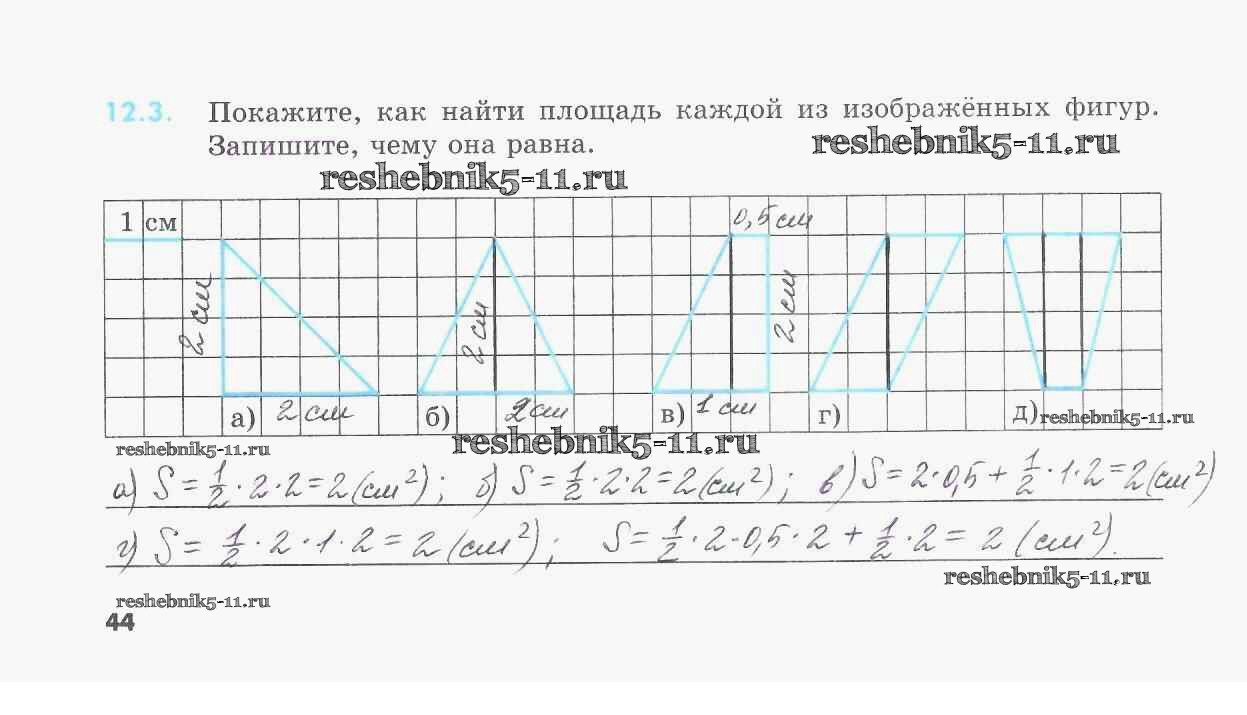 12.3. Покажите, как найти площадь каждой из изображённых фигур.
Запишите, чему она равна.
reshebnik5-11.ru
reshebnik5-11.ru
1 см
0,5 см
2 см
2 см
2 см
а) 2 см
б) 2 см
в) 1 см
г)
д) reshebnik5-11.ru
reshebnik5-11.ru
reshebnik5-11.ru
а) S = 1/2 · 2 · 2 = 2 (см²); б) S = 1/2 · 2 · 2 = 2 (см²); в) S = 2 · 0,5 + 1/2 · 1 · 2 = 2 (см²)
г) S = 1/2 · 2 · 1 · 2 = 2 (см²); S = 1/2 · 2 · 0,5 · 2 + 1/2 · 2 = 2 (см²).
reshebnik5-11.ru
reshebnik5-11.ru
44